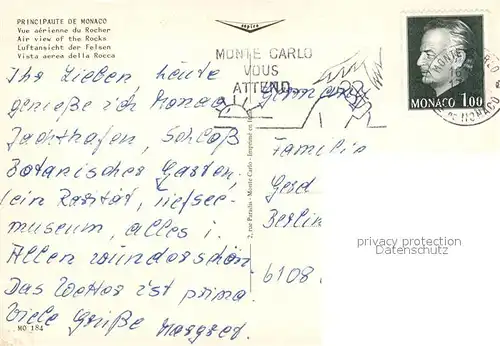 PRINCIPAUTE DE MONACO
Vue aérienne du Rocher
Air view of the Rocks
Luftansicht der Felsen
Vista aerea della Rocca
MONTE CARLO
VOUS
ATTEND
MONACO 1.00
Ihr Lieben heute
genieße ich Monaco
Jachthafen, Schloß
Botanischer Garten,
(ein Rarität, Tiefsee-
museum, alles i.
Allem wunderschön.
Das Wetter ist prima.
Viele Grüße Margret.
Germany
Familie
Gerd
Berlin
6108
MO 184
privacy protection
Datenschutz